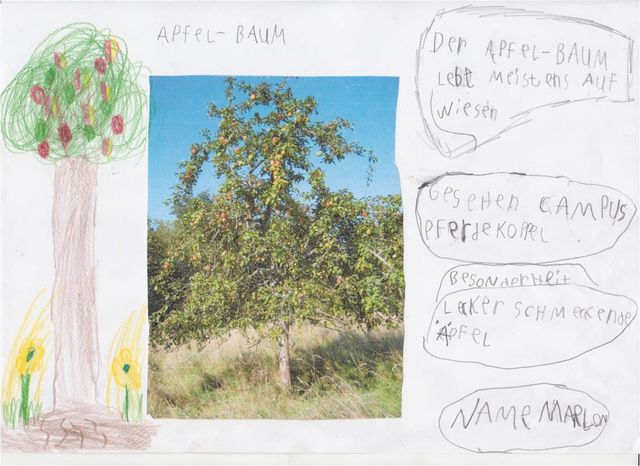 APFEL-BAUM
Der APFEL-BAUM
Lebt meistens AUF
Wiesen
GeSeHen CAMPUS
PFerdeKOPPeL
BESONDERHEIT
LecKer SCHMecKende
ÄPFEL
NAME MARLON